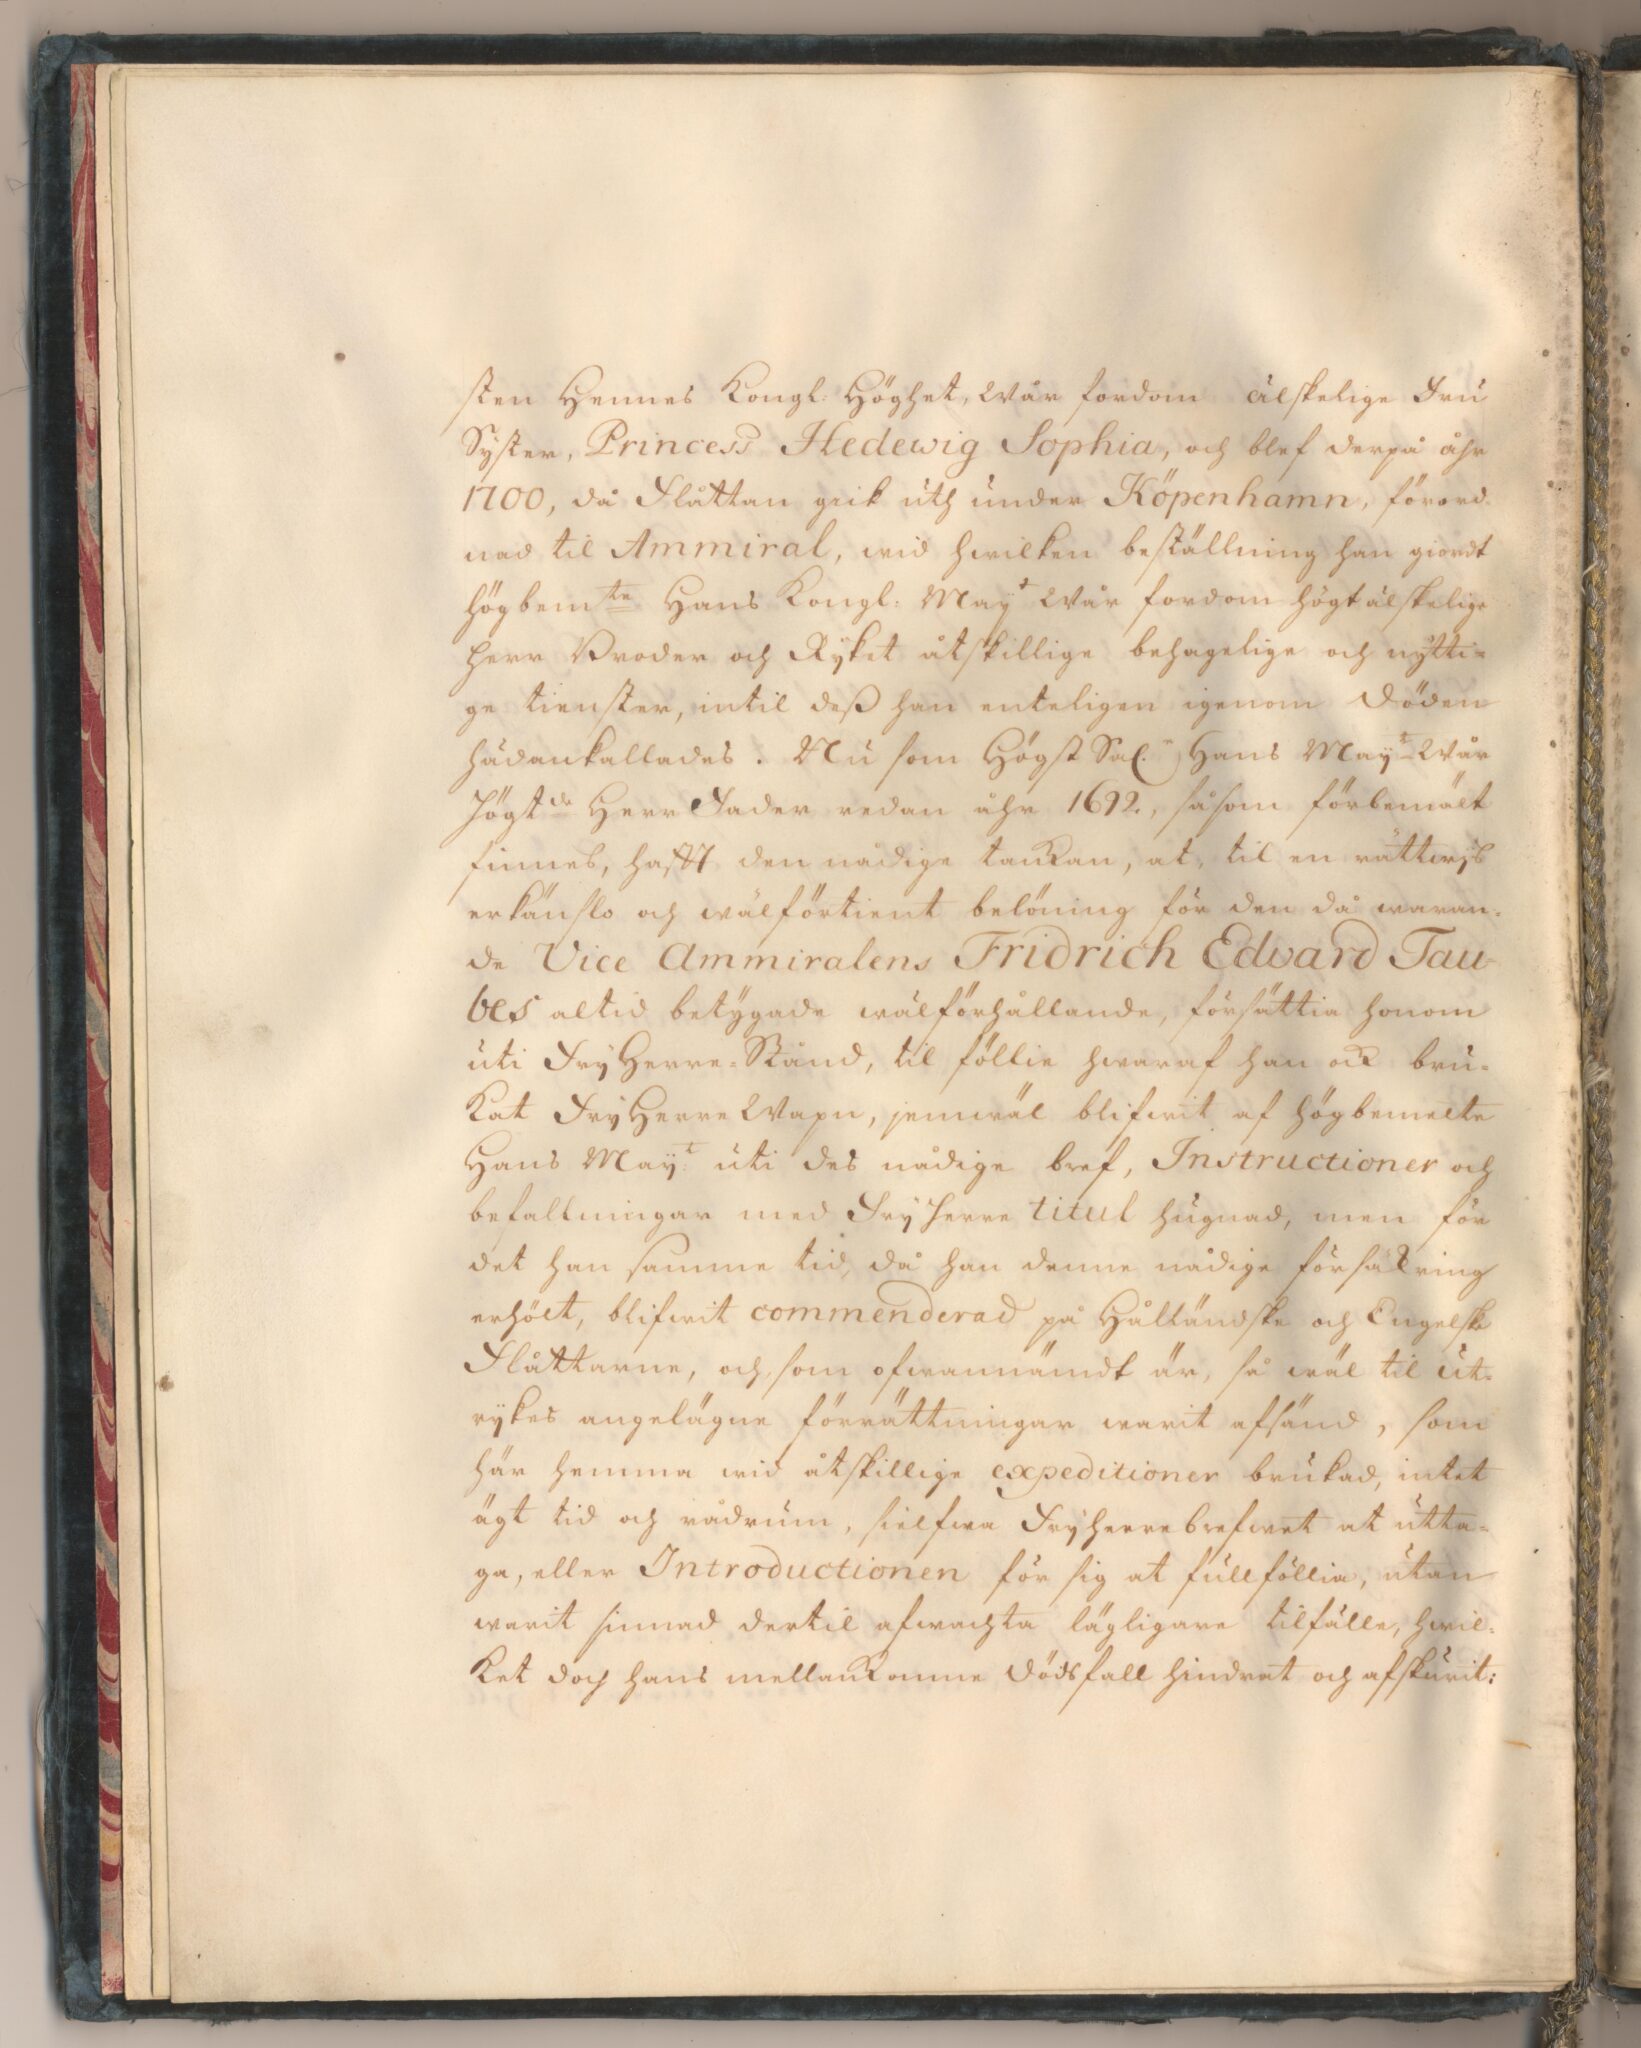 sten Hennes Kongl: Höghet, Wår fordom älskelige Fru
Syster, Princess Hedewig Sophia, och blef derpå åhr
1700, då Flåttan gick uth under Köpenhamn, förord-
nad til Ammiral, wid hwilken beställning han giordt
högbem:te Hans Kongl: May:t Wår fordom högtälskelige
Herr Broder och Ryket åtskillige behagelige och nytti-
ge tienster, intil deß han enteligen igenom döden
hädankallades. Nu som Högst Sal. Hans May:t Wår
Högt:de Herr Fader redan åhr 1692, såsom förbemält
finnes, hafft den nådige tanckan, at, til en rättwys
erkänslo och wälförtient belöning för den då waran-
de Vice Ammiralens Fridrich Edvard Tau-
bes altid betygade wälförhållande, försättia honom
uti FryHerre-Stånd, til föllie hwaraf han ock bru-
kat FryHerre Wapn, jemwäl blifwit af högbemelte
Hans May:t uti des nådige bref, Instructioner och
befallningar med FryHerre titul hugnad, men för
det han samme tid, då han denne nådige försäckring
erhölt, blifwit commenderad på Hålländske och Engelske
Flåttarne, och, som ofwannämdt är, så wäl til ut-
rykes angelägne förrättningar warit afsänd, som
här hemma wid åtskillige expeditioner brukad, intet
ägt tid och rådrum, sielfwa Fryherrebrefwet at utta-
ga, eller Introductionen för sig at fullföllia, utan
warit sinnad dertil afwachta lägligare tilfälle, hwil-
ket doch hans mellankomne dödsfall hindrat och afskurit: